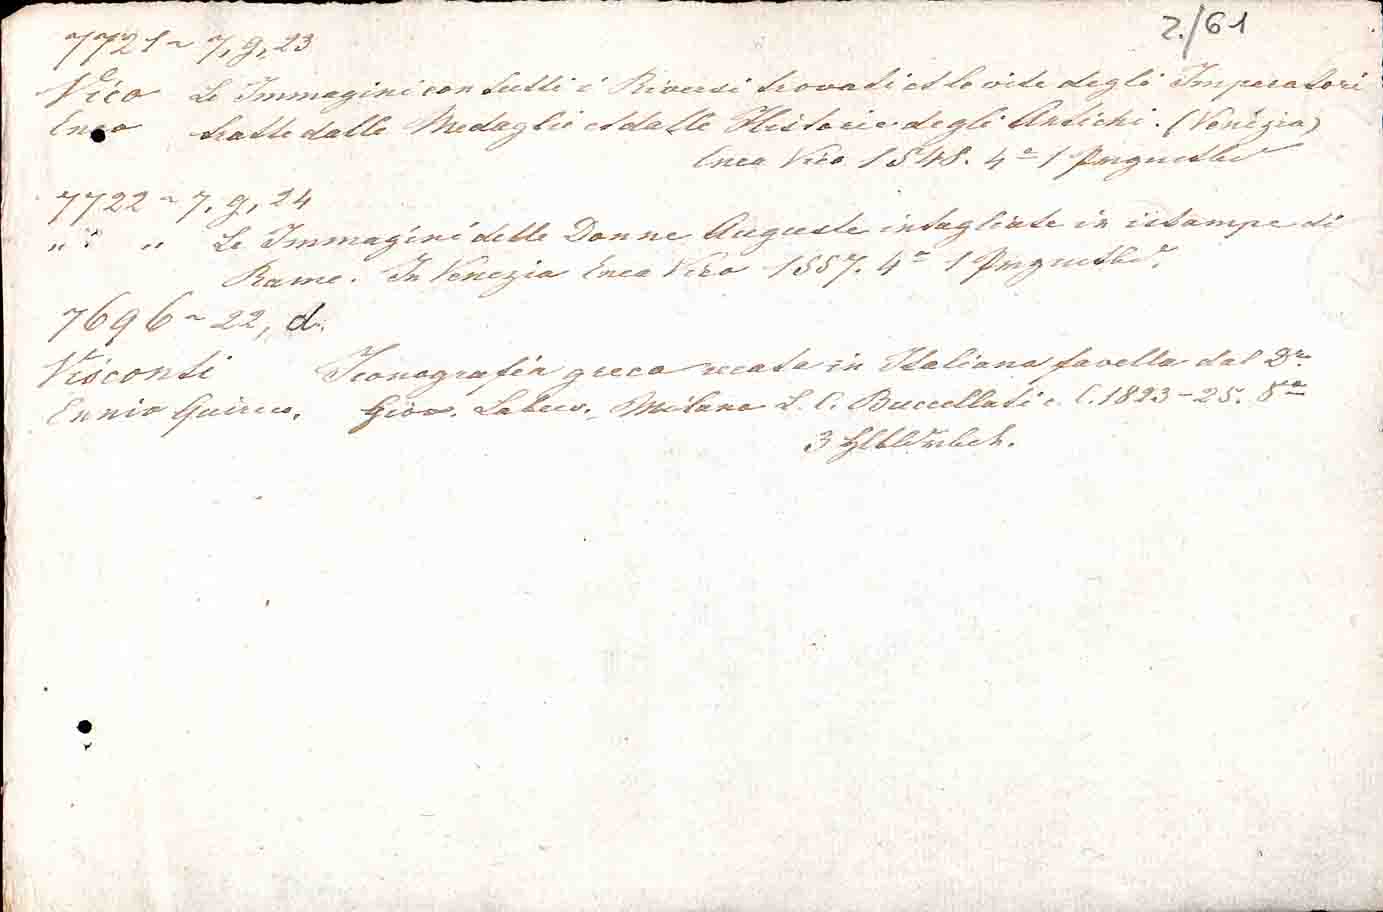 2./61
7721 ~ 7, g, 23
Vico Le Immagini con tutti i Riversi trovati et le vite degli Imperatori
Enea tratte dalle Medaglie et dalle Historie degli Antichi. (Venezia)
Enea Vico 1548. 4º 1 Prgmtbd
7722 ~ 7, g, 24
" " Le Immagini delle Donne Auguste intagliate in istampe di
Rame. In Venezia Enea Vico 1557. 4º 1 Prgmtbd.
7696 ~ 22, d.
Visconti Iconografia greca recata in Italiana favella dal Dr.
Ennio Quirico. Giov. Labus. Milano 1823-25. 8vo
3 Hlbldrbde.